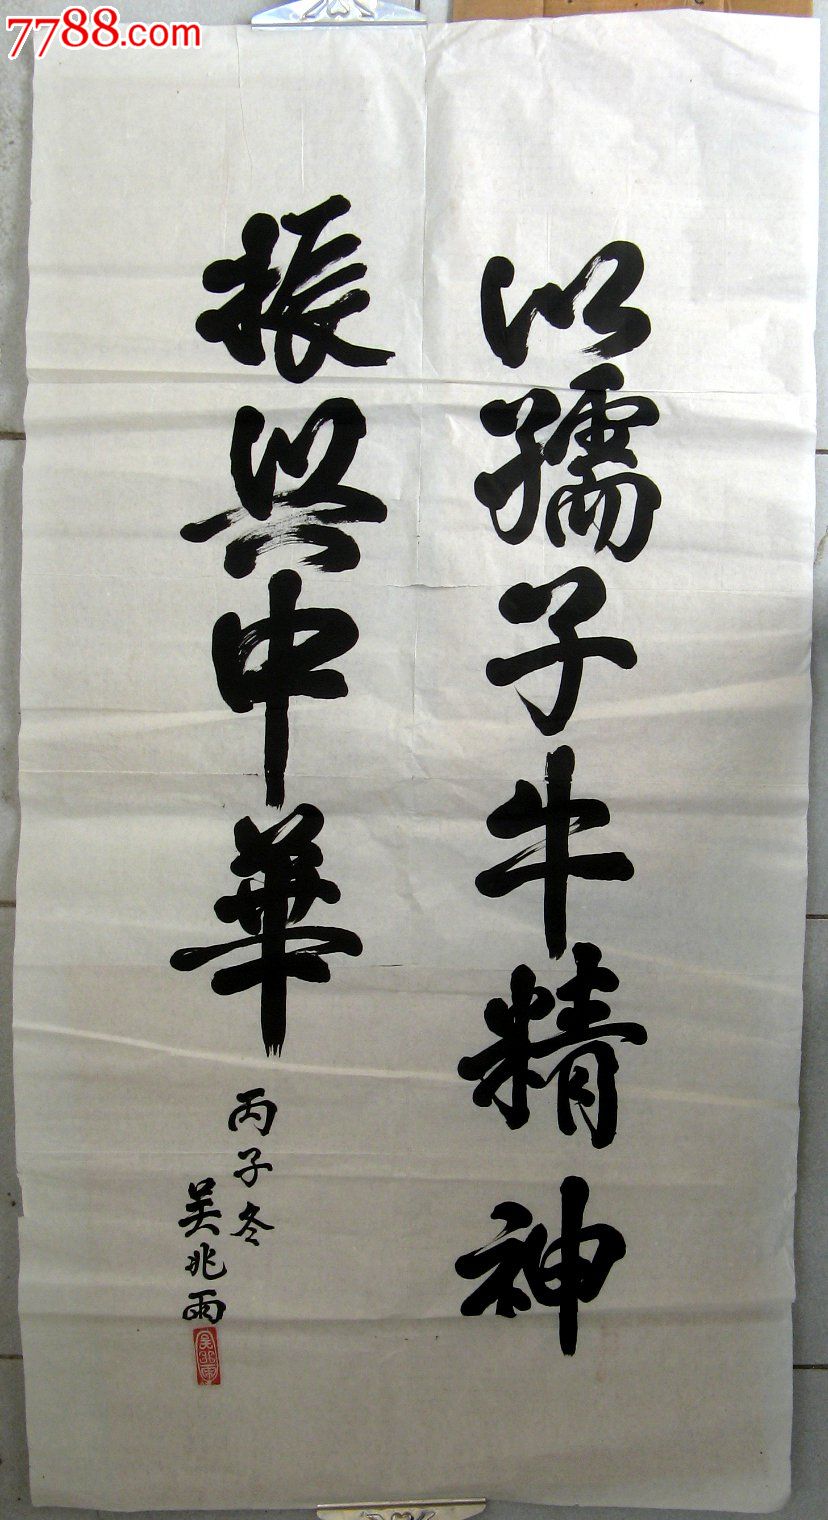 7788.com
以孺子牛精神
振興中華
丙子冬
吴兆雨
吴兆雨